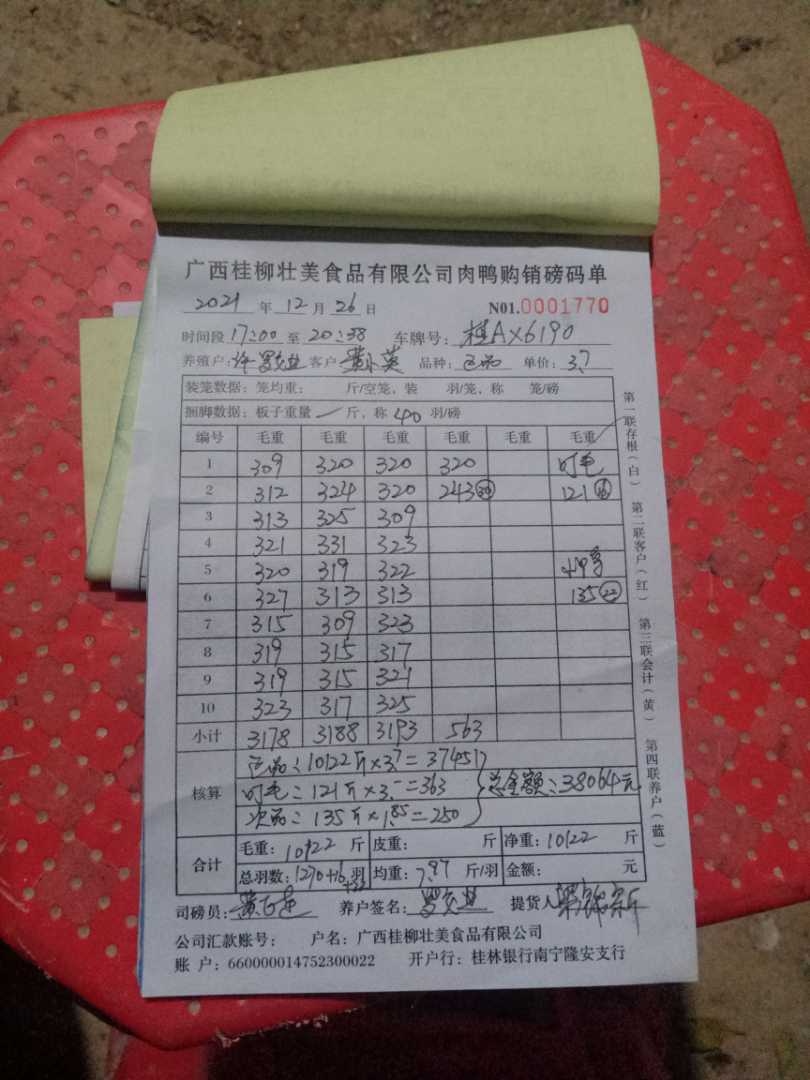 广西桂柳壮美食品有限公司肉鸭购销磅码单
2021 年 12 月 26 日 N01.0001770
时间段 17:00 至 20:38 车牌号: 桂AX6190
养殖户: 客户 黄小英 品种: 正品 单价: 3.7
装笼数据: 笼均重: 斤/空笼, 装 羽/笼, 称 笼/磅
捆脚数据: 板子重量 斤, 称 40 羽/磅
编号 毛重 毛重 毛重 毛重 毛重 毛重
1 309 320 320 320 叮毛
2 312 324 320 243 30 121 16
3 313 325 309
4 321 331 323
5 320 319 322
6 327 313 313 135 22
7 315 309 323
8 319 315 317
9 319 315 321
10 323 317 325
小计 3178 3188 3193 563
核算
正品: 10122斤×3.7=37451
叮毛: 121斤×3.-=363 总金额: 38064元
次品: 135斤×1.85=250
合计
毛重: 10122 斤 皮重: 斤 净重: 10122 斤
总羽数: 1270+16 羽 均重: 7.97 斤/羽 金额: 元
+22
司磅员: 养户签名: 提货人
公司汇款账号: 户名: 广西桂柳壮美食品有限公司
账 户: 660000014752300022 开户行: 桂林银行南宁隆安支行
第一联存根(白)
第二联客户(红)
第三联会计(黄)
第四联养户(蓝)